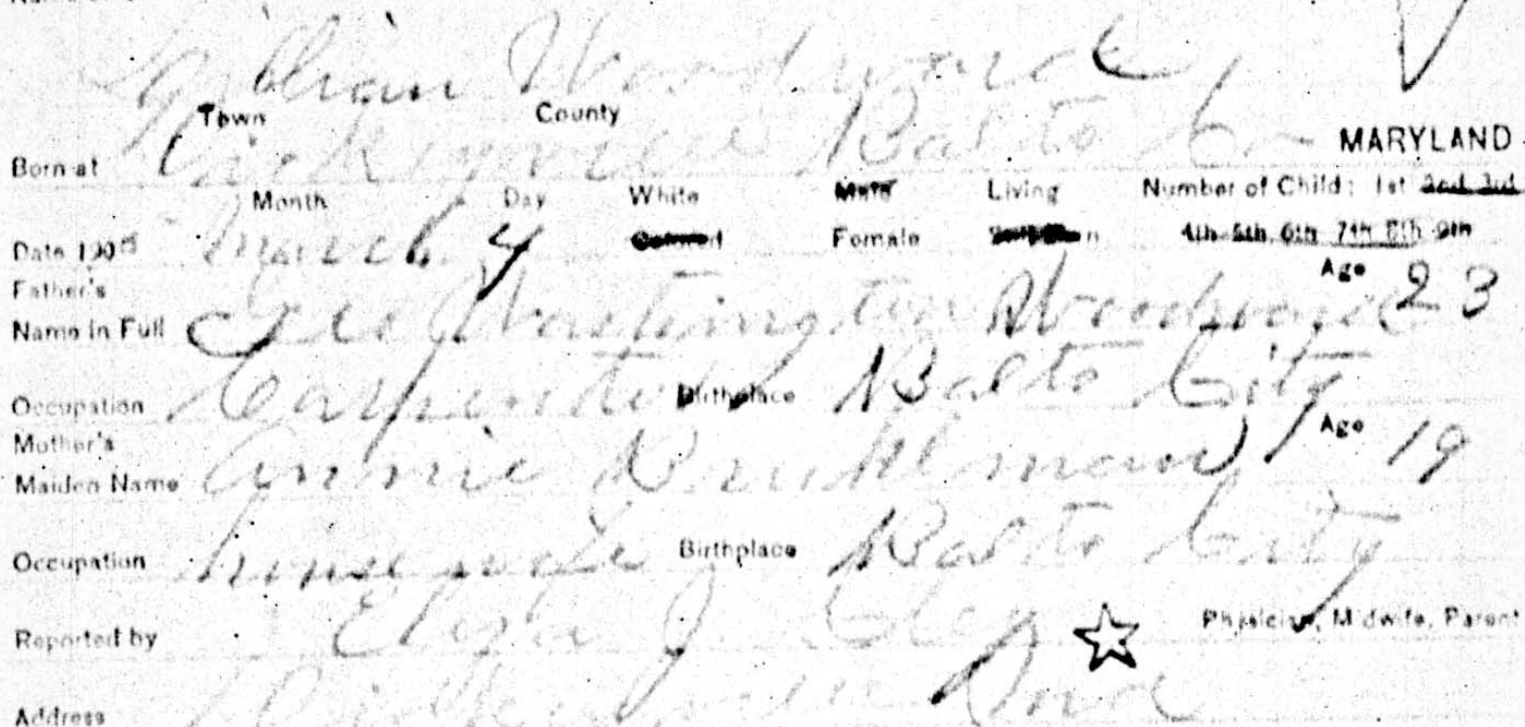 Lillian Woodward
Town County
Born at Balto Co MARYLAND
Month Day White Male Living Number of Child: 1st 2nd 3rd
Date 190 March 4 Colored Female 4th 5th 6th 7th 8th 9th
Father's Age 23
Name in Full Geo Washington Woodward
Occupation Carpenter Birthplace Balto City
Mother's Age 19
Maiden Name Annie
Occupation housewife Birthplace Balto City
Reported by J Physician, Midwife, Parent
Address Md